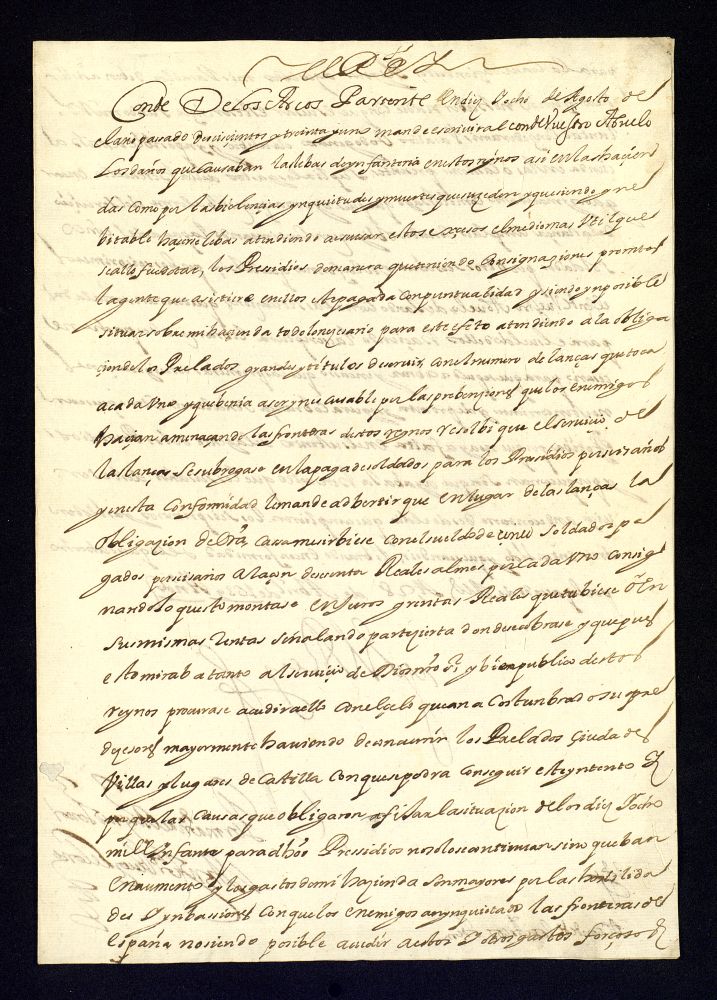 El Rey
Conde De los Arcos Pariente En diez y ocho de Agosto de
el año passado de seiscientos y treinta y uno mande escrivir al conde Vuestro Abuelo
Los daños que causaban las lebas de ynfanteria en estos rynos asi en las haçien
das como por las biolençias ynquietudes y muertes que suçeden y que siendo yne
bitable haçerse lebas atendiendo a escusar estos exçesos el medio mas Util que
se allo fue dotar, los Presidios de manera que teniendo Consignaçiones promtas
la gente que asistiere en ellos este pagada con puntualidad y siendo ynposible
situar sobre mi haçienda todo lo neçesario para este efeto atendiendo a la obliga
çion de los Prelados grandes y titulos de servir, con el numero de lanças que toca
a cada Uno y que benia a ser ynescusable por las prebençiones que los enemigos
haçian amenaçando las fronteras destos reynos resolbi que el serviçio de
las lanças se subrogase en la paga de soldados para los Presidios por seis años
y en esta conformidad le mande adbertir que en lugar de las lanças la
obligazion de su casa me sirbiese con el sueldo de çinco soldados pa
gados por seis años a raçon de sesenta Reales al mes por cada Uno Consig
nando lo que esto montase en juros y rentas Reales que tubiese o En
sus mismas rentas señalando parte çierta donde se cobrase y que pues
esto miraba tanto al serviçio de Dios nro sr y bien publico destos
reynos procurase acudir a ello con el çelo que an acostunbrado sus pre
deçesores mayormente haviendo de concurrir los Prelados çiudades
Villas y lugares de Castilla con que se podra conseguir este yntento
porque las causas que obligaron a fijar la situazion de los diez y ocho
mill Infantes para dhos Pressidios no solo se continuan sino que ban
en aumento y los gastos de mi hazienda son mayores por las hostilida
des y ynbasiones con que los enemigos an ynquietado las fronteras de
españa no siendo posible acudir a estos y otros gastos forçosos